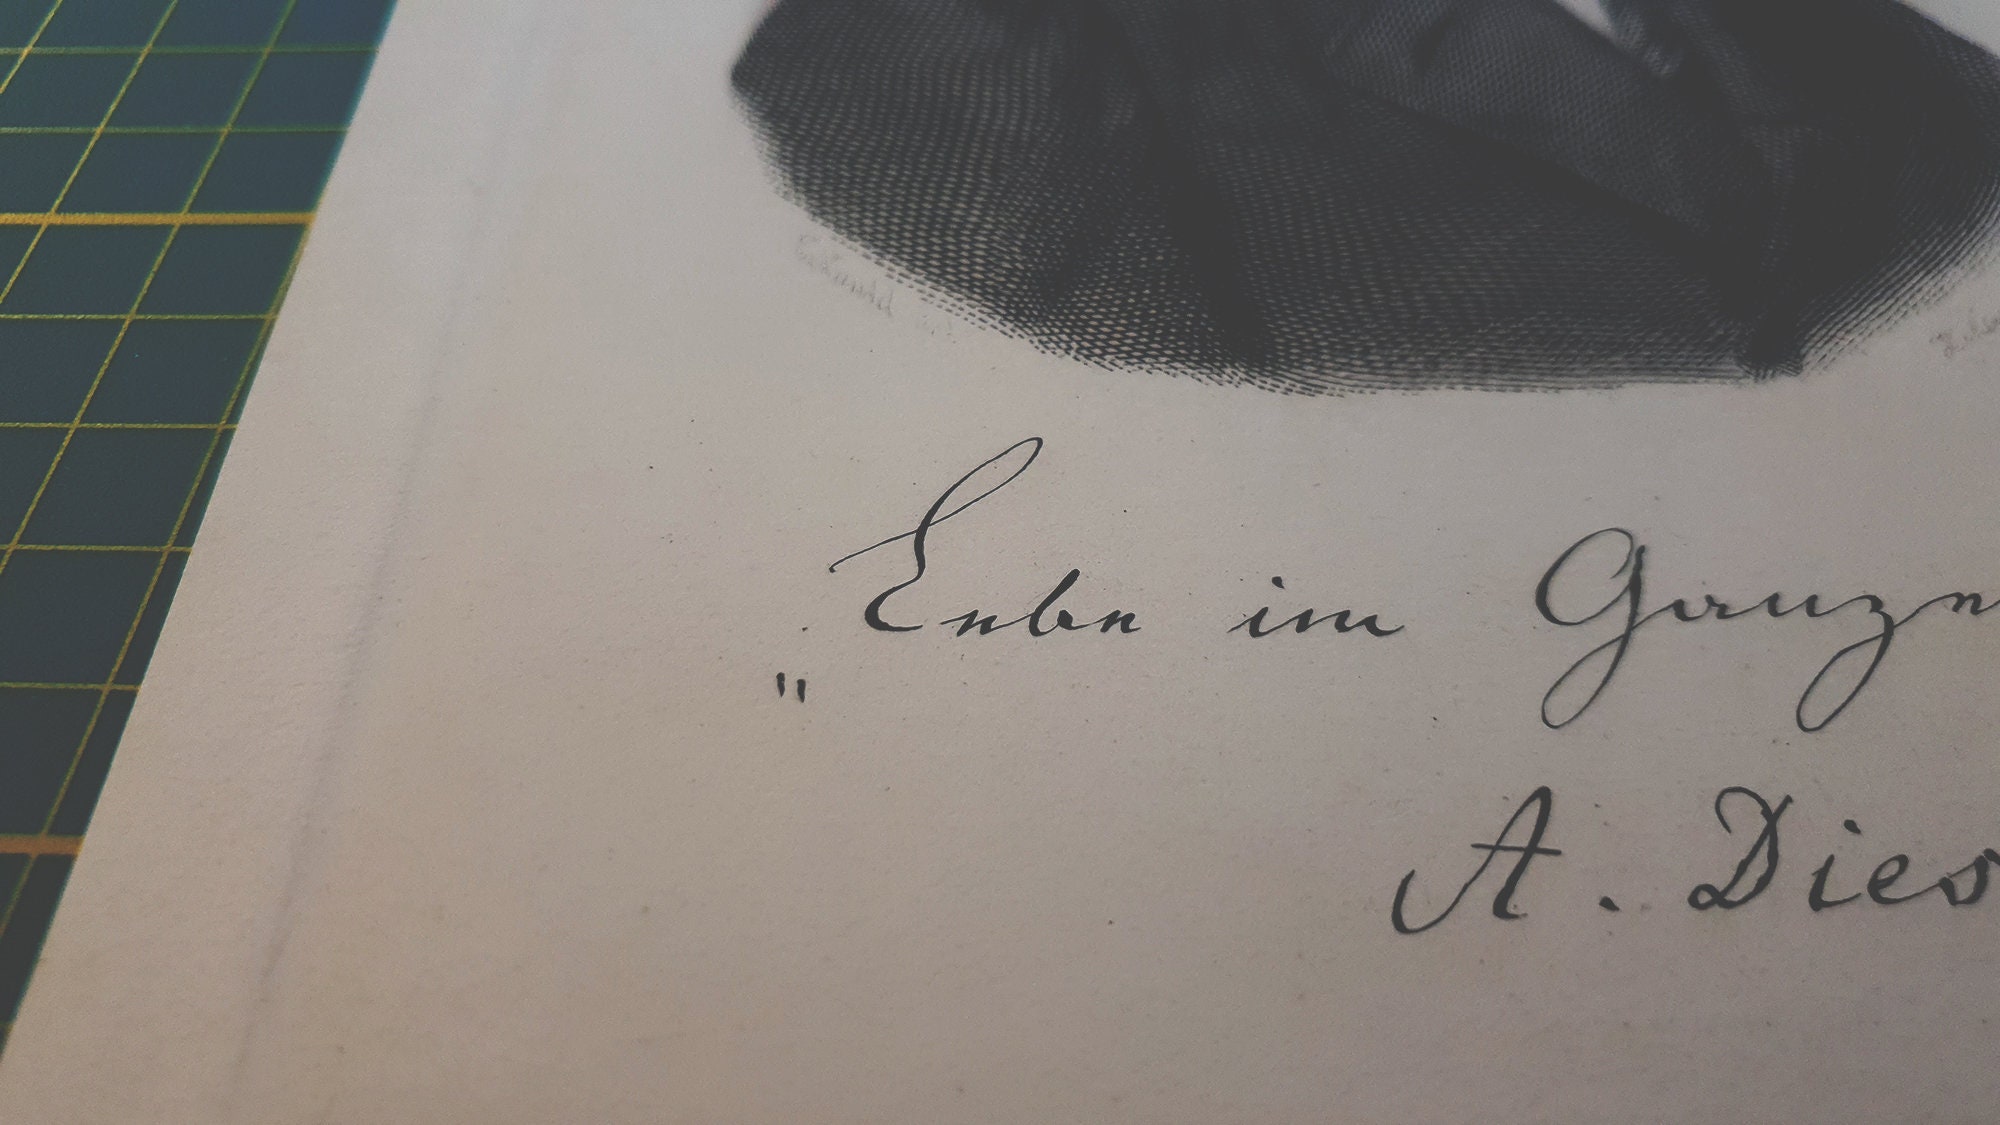 „Lebe im Ganze
A. Dies